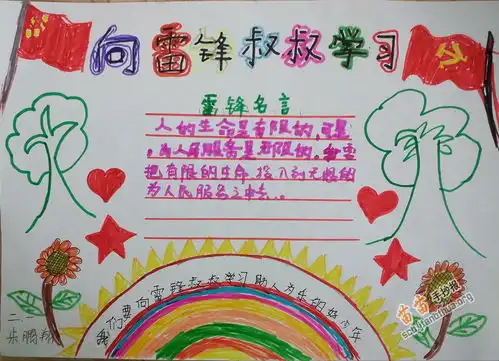 向雷锋叔叔学习
雷锋名言
人的生命是有限的,可是
,为人民服务是无限的,我要
把有限的生命投入到无限的
为人民服务之中去。。
我们要向雷锋叔叔学习助人为乐的好少年
二、一
朱鹏翔
苗苗手抄报
Shouchaobao.org